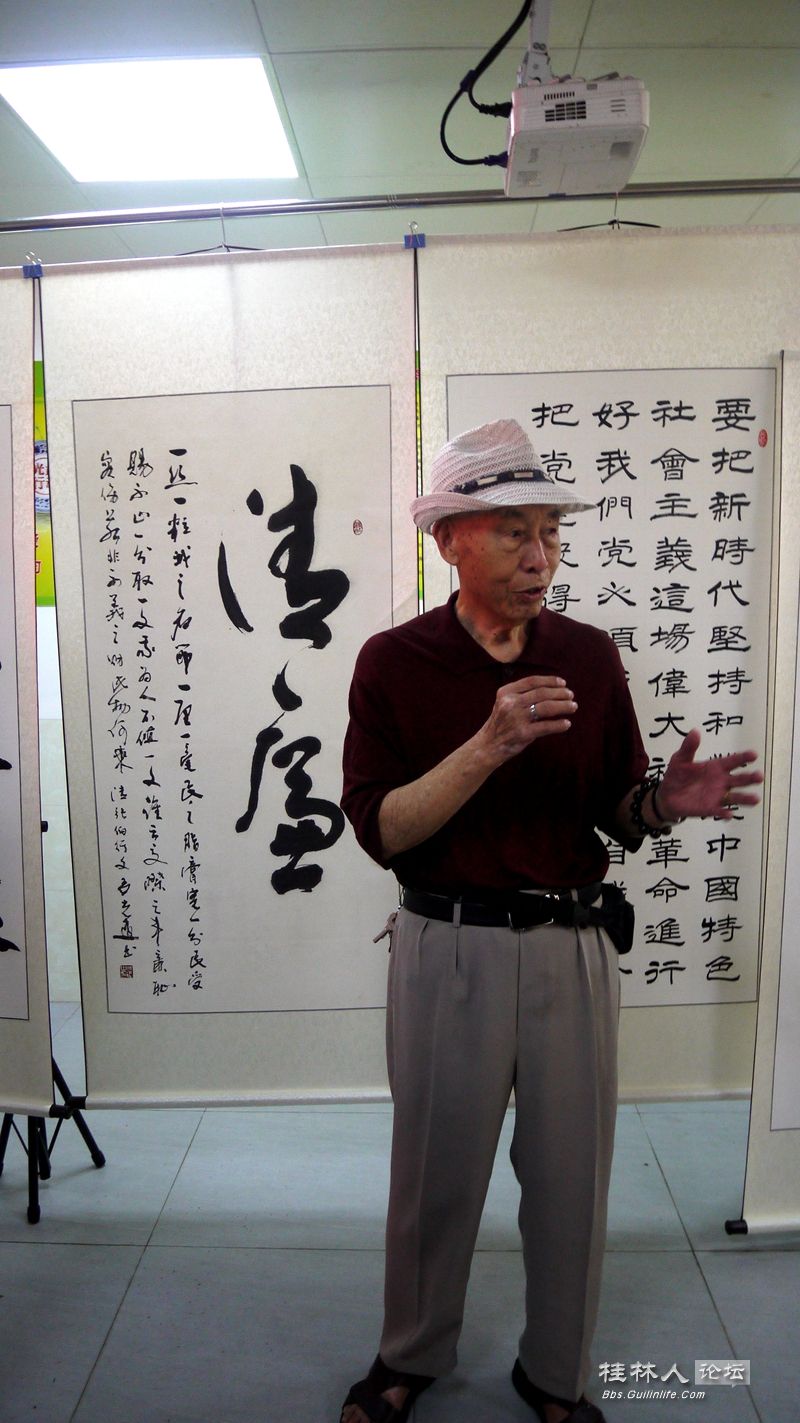 要把新時代堅持和展中國特色
社會主義這場偉大社革命進行
好我們党必須自
把党得
清廉
一絲一粒我之名節一厘一毫民之脂膏寬一分民受
賜不止一分取一文我为人不值一文誰云交際之常廉恥
實傷若非不義之财此物何來 清张伯行文
桂林人论坛
Bbs.Guilinlife.Com